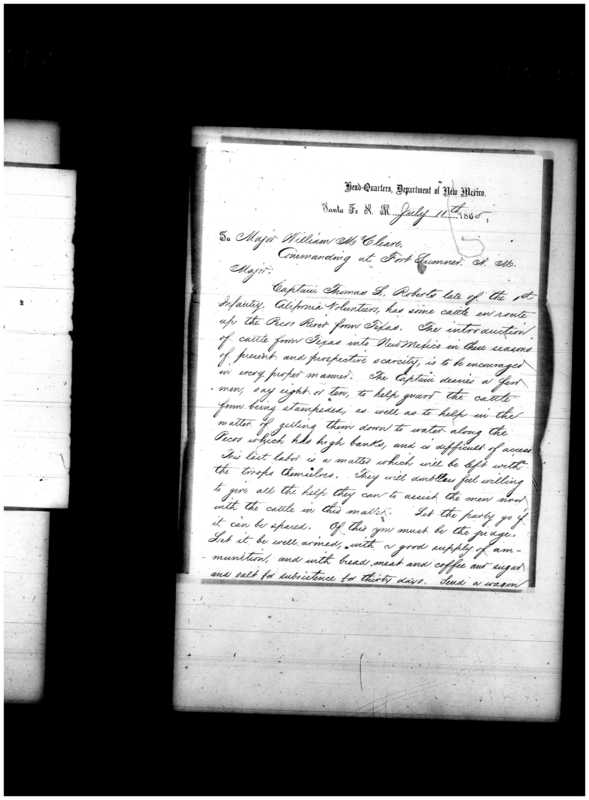 Head-Quarters, Department of New Mexico.
Santa Fe N. M. July 11th 1865,
To Major William McCleave.
Commanding at Fort Sumner. N. M.
Major:
Captain Thomas L. Roberts late of the 1st
Infantry, California Volunteers, has some cattle en route
up the Pecos River from Texas. The introduction
of cattle from Texas into New Mexico in these seasons
of present and prospective scarcity, is to be encouraged
in every proper manner. The Captain desires a few
men, say eight or ten, to help guard the cattle
from being stampeded, as well as to help in the
matter of getting them down to water along the
Pecos which has high banks, and is difficult of access
This last labor is a matter which will be left with
the troops themselves. They will doubtless feel willing
to give all the help they can to assist the men now
with the cattle in this matter. Let the party go if
it can be spared. Of this you must be the judge.
Let it be well armed, with a good supply of am-
-munition, and with bread, meat and coffee and sugar
and salt for subsistence for thirty days. Send a wagon